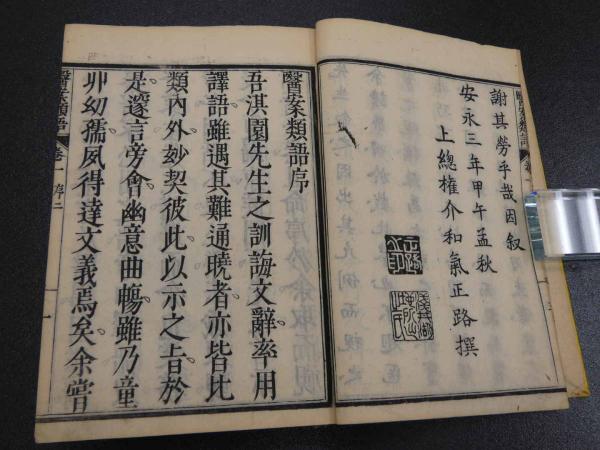 謝其勞乎哉因叙
安永三年甲午孟秋
上總權介和氣正路撰
醫案類語序
吾淇園先生之訓誨文辭率用
譯語雖遇其難通曉者亦皆比
類內外妙契彼此以示之㫖於
是邃言旁會幽意曲暢雖乃童
丱幼孺夙得達文義焉矣余嘗
醫案類語 卷一 序二